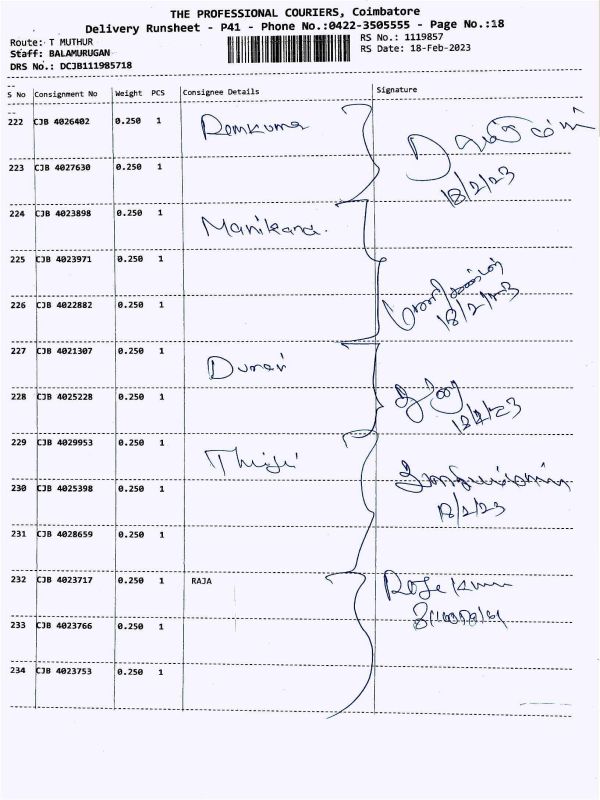 THE PROFESSIONAL COURIERS, Coimbatore
Delivery Runsheet - P41 - Phone No.:0422-3505555 - Page No.:18
Route: T MUTHUR RS No.: 1119857
Staff: BALAMURUGAN RS Date: 18-Feb-2023
DRS No.: DCJB111985718
S No Consignment No Weight PCS Consignee Details Signature
222 CJB 4026402 0.250 1 Ramkuma
223 CJB 4027630 0.250 1
18/2/23
224 CJB 4023898 0.250 1 Manikana.
225 CJB 4023971 0.250 1
226 CJB 4022882 0.250 1
18/2/23
227 CJB 4021307 0.250 1 Durai
228 CJB 4025228 0.250 1
18/2/23
229 CJB 4029953 0.250 1
230 CJB 4025398 0.250 1
18/2/23
231 CJB 4028659 0.250 1
232 CJB 4023717 0.250 1 RAJA
233 CJB 4023766 0.250 1
234 CJB 4023753 0.250 1